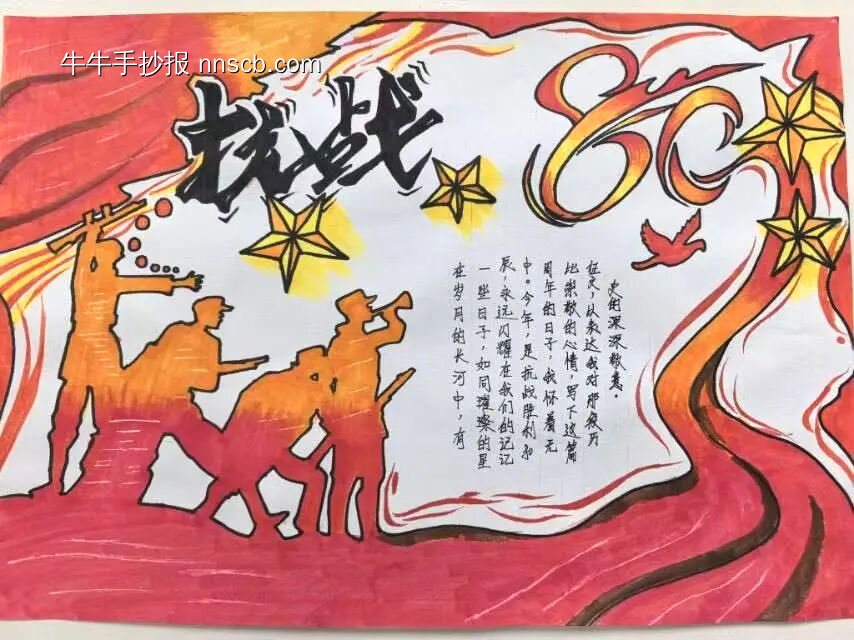 牛牛手抄报 nnscb.com
抗战
80
在岁月的长河中，有
一些日子，如同璀璨的星
辰，永远闪耀在我们的记记
中。今年，是抗战胜利
周年的日子，我怀着无
比崇敬的心情，写下这篇
征文，以表达我对那段历
史的深深敬意。